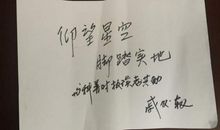 仰望星空
脚踏实地
与科幕时报读者共勉
戚发轫